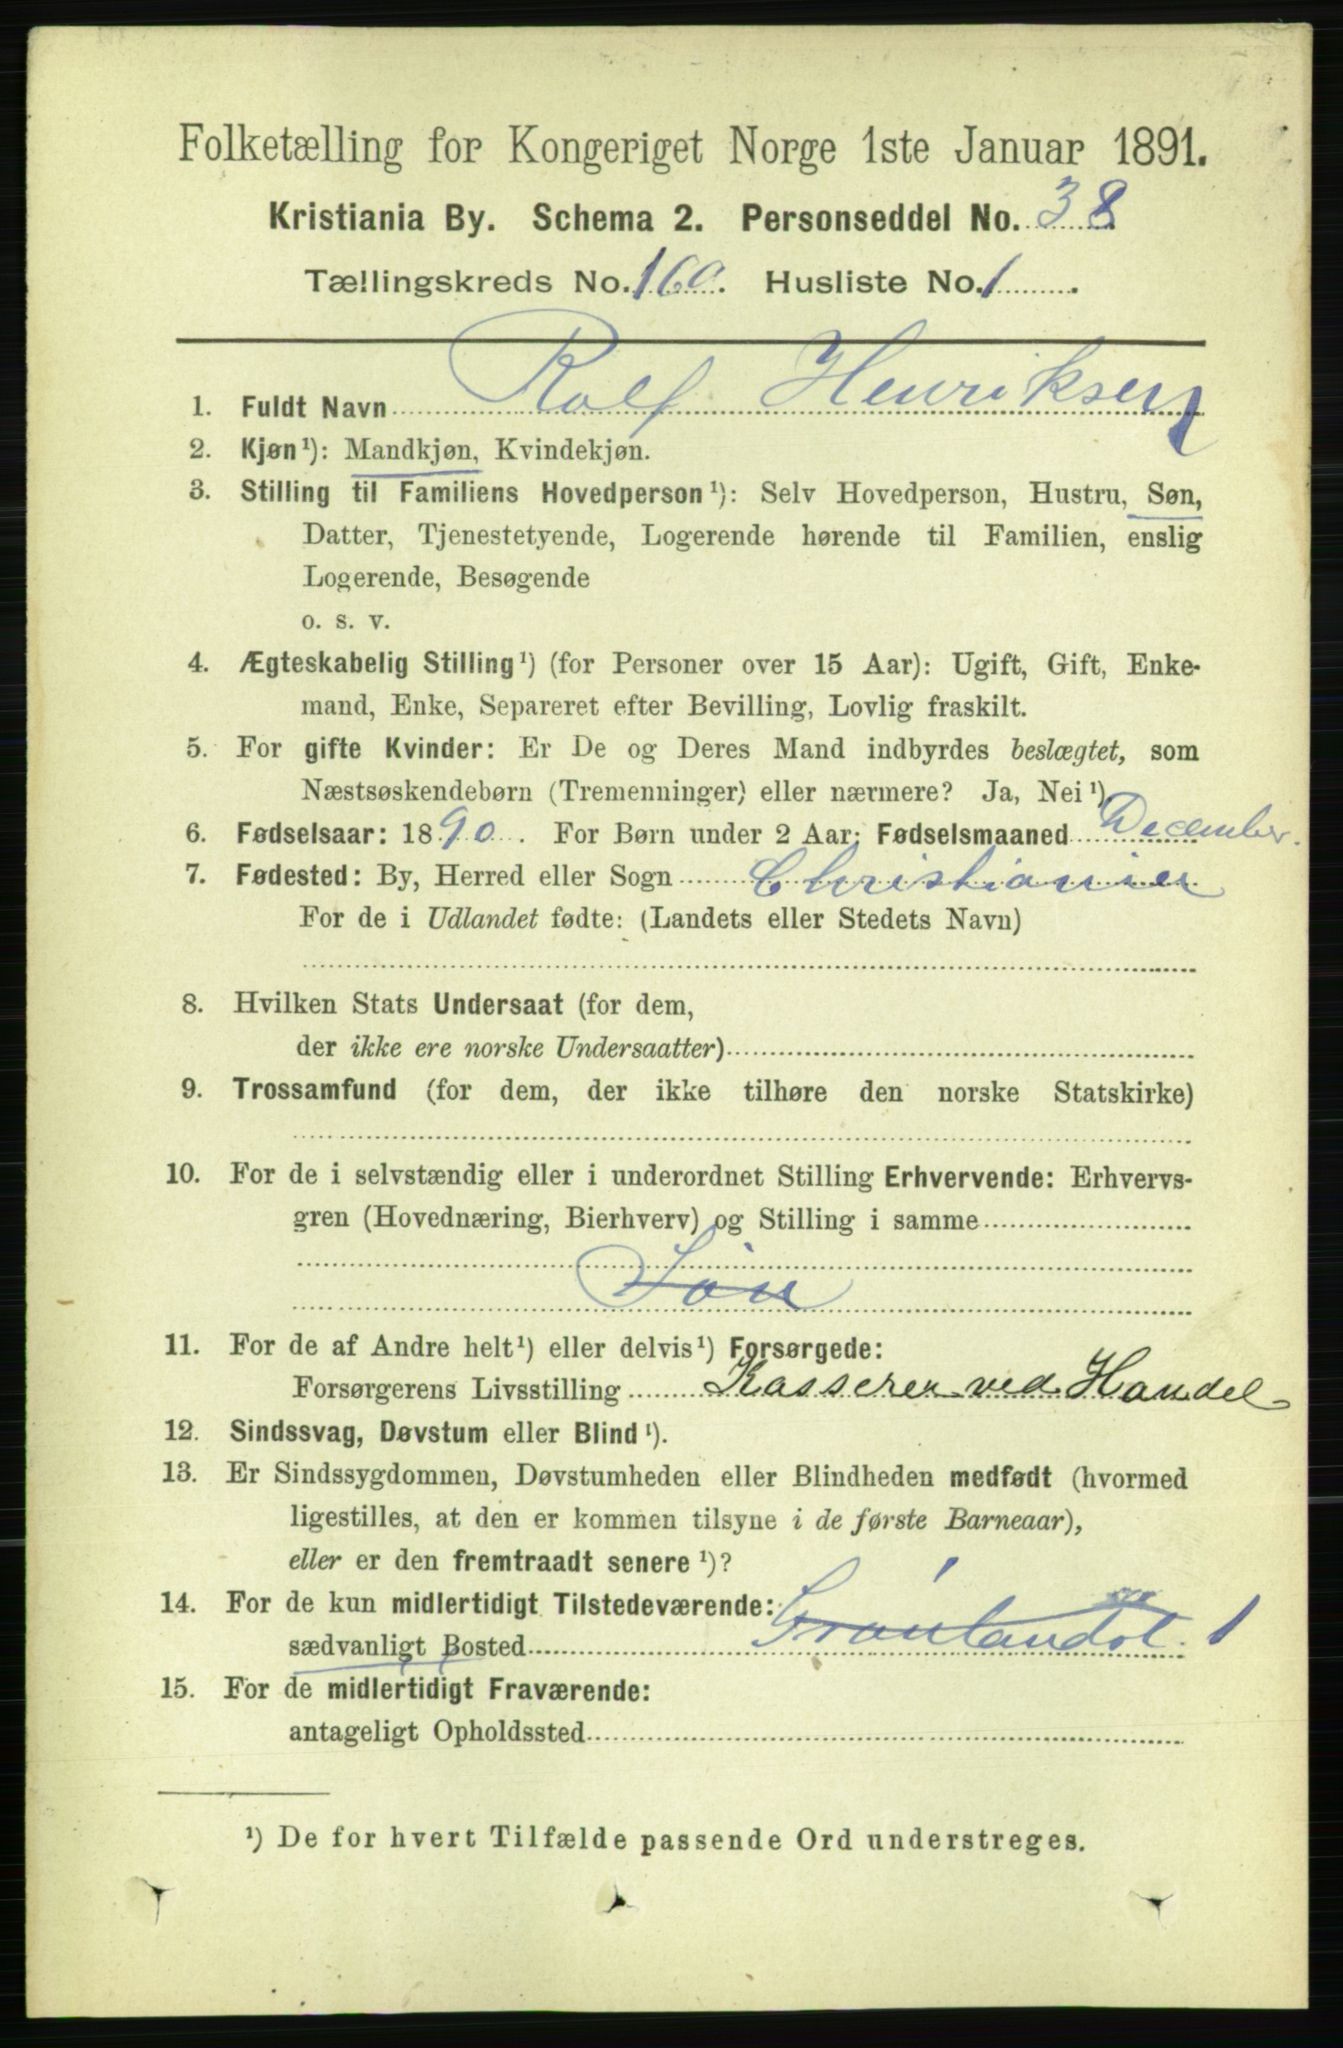 Folketælling for Kongeriget Norge 1ste Januar 1891.
Kristiania By. Schema 2. Personseddel No. 38
Tællingskreds No. 160. Husliste No. 1.
1. Fuldt Navn Rolf Henriksen
2. Kjøn¹): Mandkjøn, Kvindekjøn.
3. Stilling til Familiens Hovedperson¹): Selv Hovedperson, Hustru, Søn,
Datter, Tjenestetyende, Logerende hørende til Familien, enslig
Logerende, Besøgende
o. s. v.
4. Ægteskabelig Stilling¹) (for Personer over 15 Aar): Ugift, Gift, Enke-
mand, Enke, Separeret efter Bevilling, Lovlig fraskilt.
5. For gifte Kvinder: Er De og Deres Mand indbyrdes beslægtet, som
Næstsøskendebørn (Tremenninger) eller nærmere? Ja, Nei¹)
6. Fødselsaar: 1890. For Børn under 2 Aar: Fødselsmaaned December.
7. Fødested: By, Herred eller Sogn Christiania
For de i Udlandet fødte: (Landets eller Stedets Navn)
8. Hvilken Stats Undersaat (for dem,
der ikke ere norske Undersaatter)
9. Trossamfund (for dem, der ikke tilhøre den norske Statskirke)
10. For de i selvstændig eller i underordnet Stilling Erhvervende: Erhvervs-
gren (Hovednæring, Bierhverv) og Stilling i samme
Søn
11. For de af Andre helt¹) eller delvis¹) Forsørgede:
Forsørgerens Livsstilling Kasserer ved Handel
12. Sindssvag, Døvstum eller Blind¹).
13. Er Sindssygdommen, Døvstumheden eller Blindheden medfødt (hvormed
ligestilles, at den er kommen tilsyne i de første Barneaar),
eller er den fremtraadt senere¹)?
14. For de kun midlertidigt Tilstedeværende:
sædvanligt Bosted 1
15. For de midlertidigt Fraværende:
antageligt Opholdssted
¹) De for hvert Tilfælde passende Ord understreges.